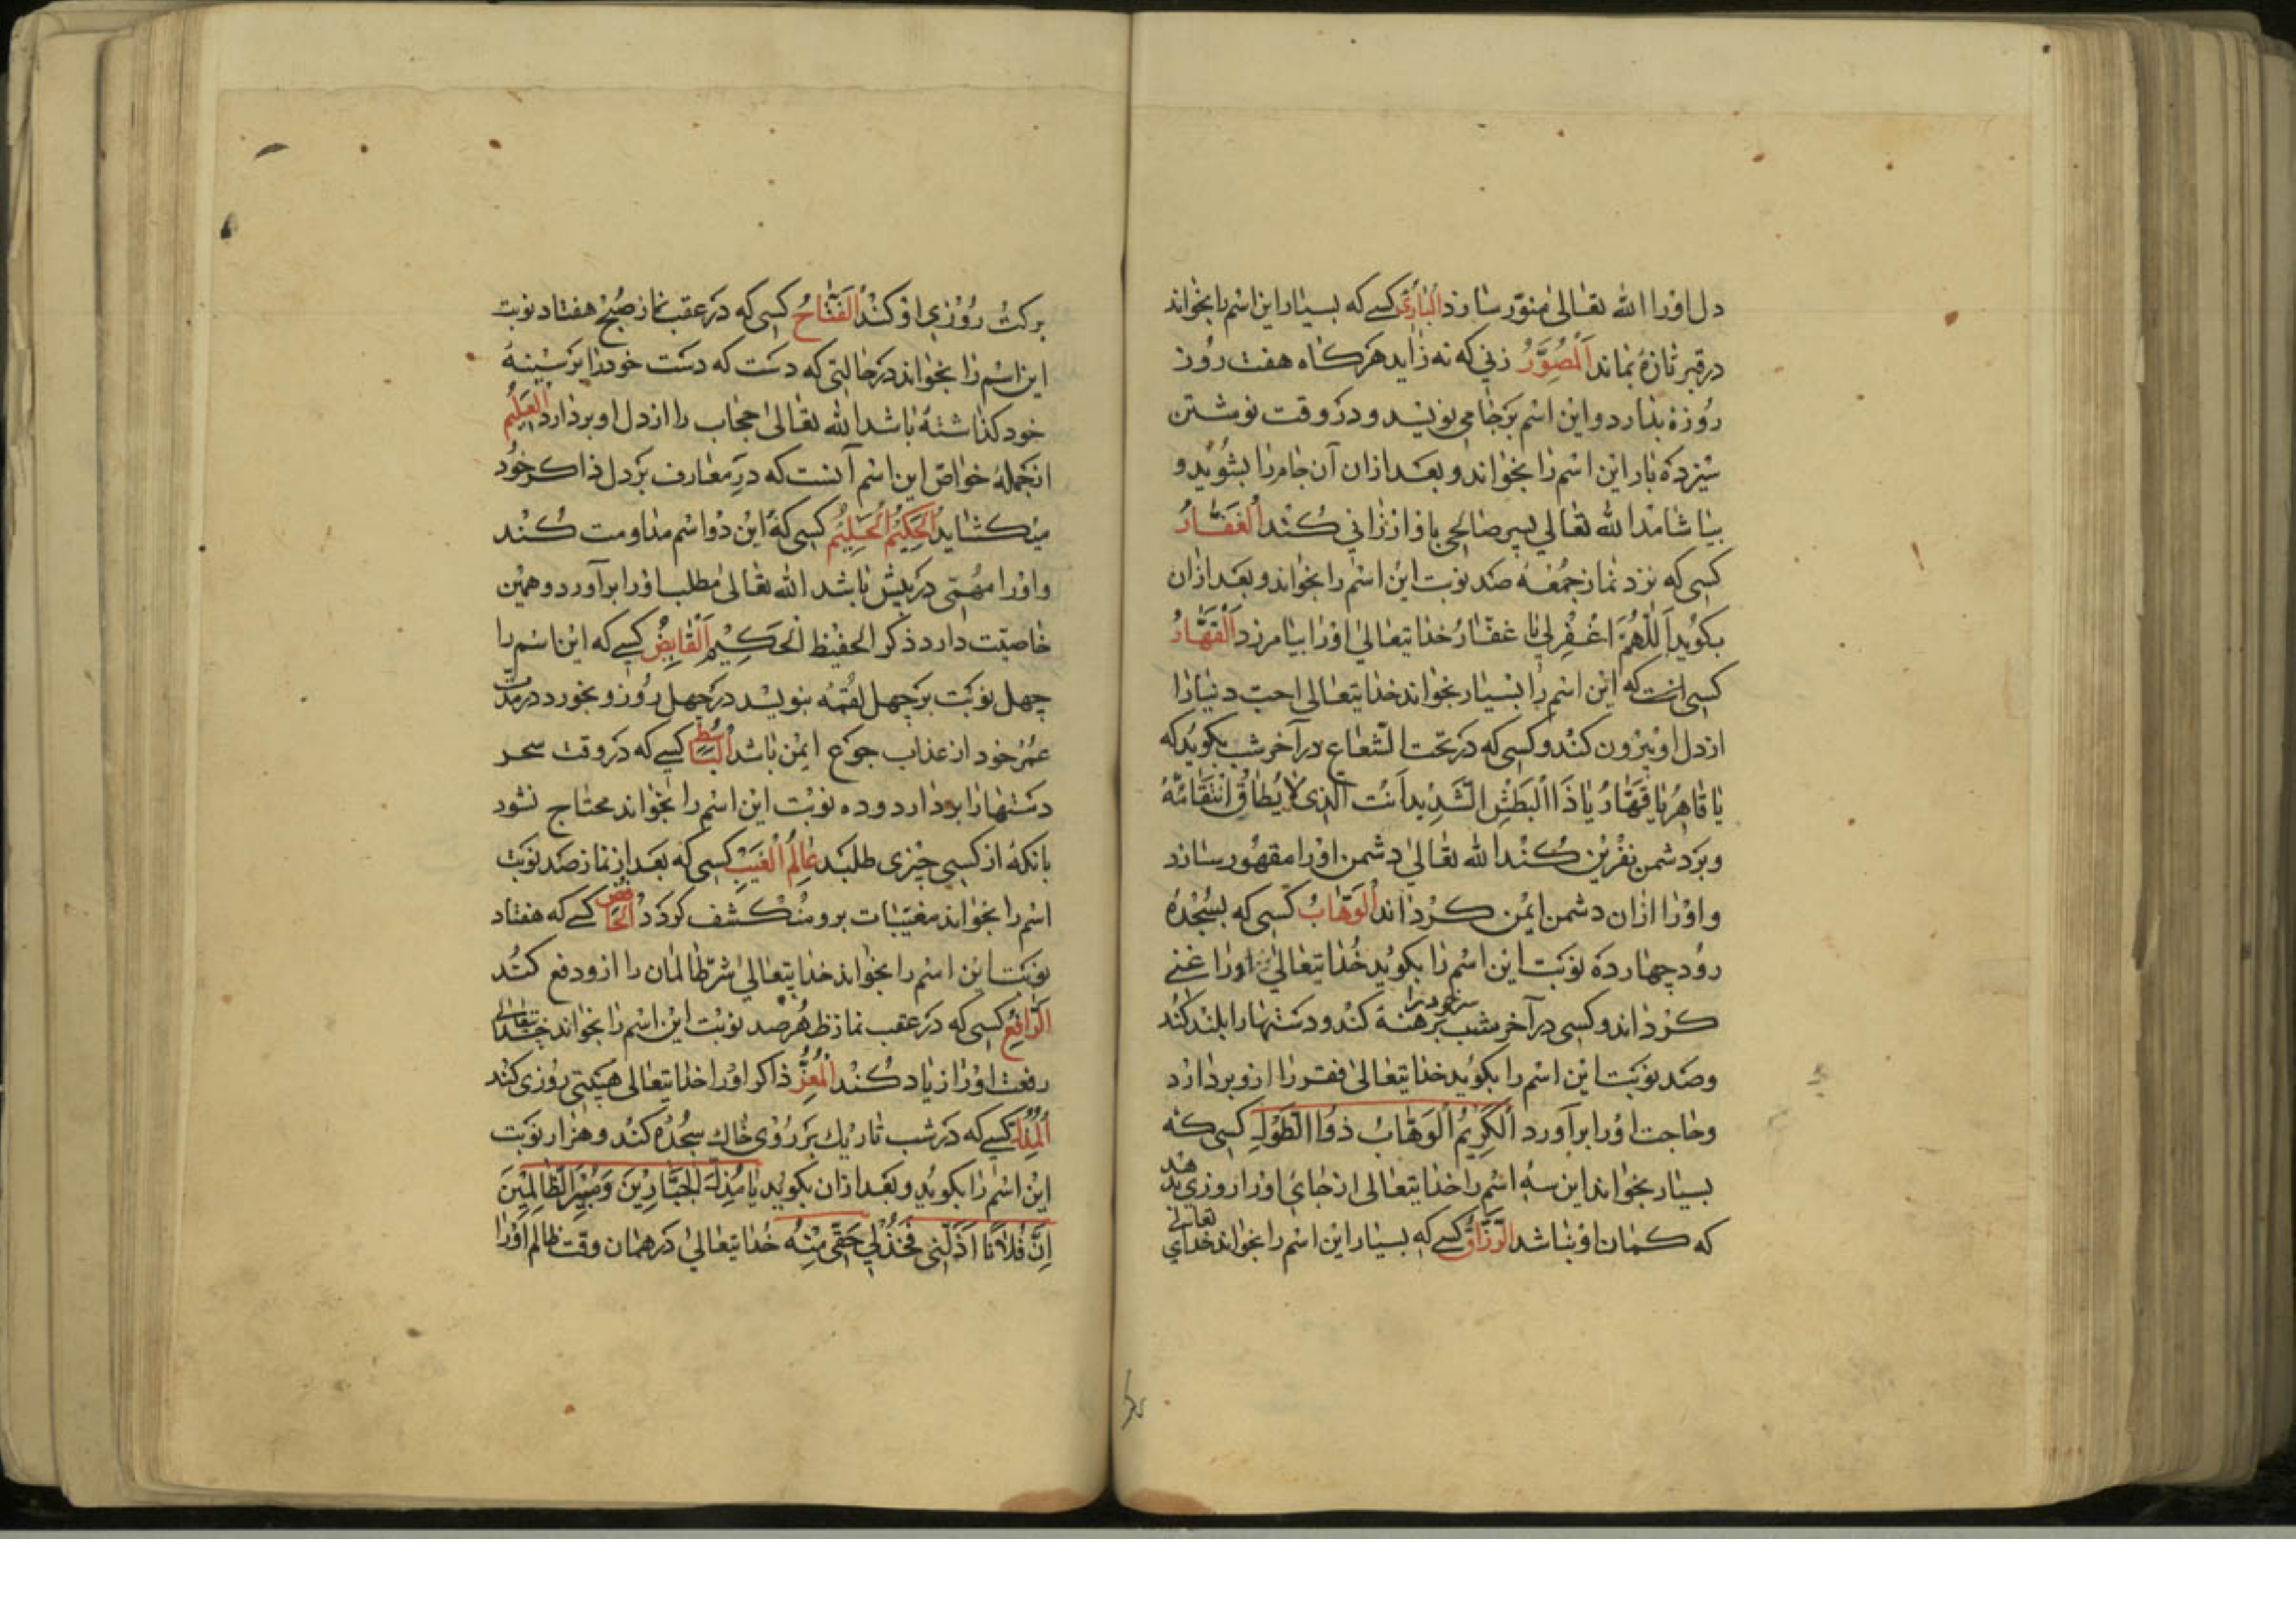 دل اورا الله تعالی منوّر سازد البارئ کسے که بسیار این اسم را بخواند
در قبر تازه بماند اَلْمُصَوِّرُ زنی که نه زاید هرکاه هفت روز
روزه بدارد و این اسم بر جامی نویسد و در وقت نوشتن
سیزده بار این اسم را بخواند و بعد ازان آن جام را بشوید و
بیاشامد الله تعالی پسر صالحی باو ارزانی کند اَلْغَفَّارُ
کسی که نزد نماز جمعه صد نوبت این اسم را بخواند و بعد ازان
بکوید اَللّهُمَّ اغْفِرْلی یا غفّارُ خدایتعالی اورا بیامرزد اَلْقَهَّارُ
کسی است که این اسم را بسیار بخواند خدایتعالی احب دنیا را
از دل او بیرون کند و کسی که در تحت الشعاع در آخر شب بکوید که
یا قاهِرُ یا قَهّارُ یا ذَا الْبَطْشِ الشَّدِیدِ اَنْتَ الَّذی لا یُطاقُ انْتِقامُهُ
و بر دشمن نفرین کند الله تعالی دشمن اورا مقهور سازد
و اورا ازان دشمن ایمن کرداند اَلْوَهّابُ کسی که بسجده
رود چهارده نوبت این اسم را بکوید خدایتعالی اورا غنے
کرداند و کسی در آخر شب سر خود را برهنه کند و دستها را بلند کند
و صد نوبت این اسم را بکوید خدایتعالی فقر را ازو بردارد
و حاجت اورا برآورد اَلْکَرِیمُ اَلْوَهّابُ ذُوا الطَّوْلِ کسی که
بسیار بخواند این سه اسم را خدایتعالی از جائی اورا روزی دهد
که کمان او نباشد الرّزّاق کسے که بسیار این اسم را بخواند خدای تعالی
برکت روزی او کند اَلْفَتّاحُ کسی که در عقب نماز صبح هفتاد نوبت
این اسم را بخواند در حالتی که دست که دست خود را بر سینهٔ
خود کذاشته باشد الله تعالی حجاب را از دل او بردارد اَلْعَلِیمُ
از جملهٔ خواص این اسم آنست که در معارف بر دل ذاکر خود
میکشاید اَلْحَکِیمُ اَلْحَلِیمُ کسی که این دو اسم مداومت کند
و اورا مهمّی در پیش باشد الله تعالی مطلب اورا برآورد و همین
خاصیّت دارد ذکر الحفیظ الحکیم اَلْقابِضُ کسے که این اسم را
چهل نوبت بر چهل لقمه بنویسد در چهل روز و بخورد در مدّت
عمر خود از عذاب جوع ایمن باشد الباسط کسے که در وقت سحر
دستها را بردارد و ده نوبت این اسم را بخواند محتاج نشود
بانکه از کسی چیزی طلبد عالِمُ الْغَیْبِ کسی که بعد از نماز صد نوبت
اسم را بخواند مغیّبات برو منکشف کردد الخافض کسے که هفتاد
نوبت این اسم را بخواند خدایتعالی شرّ ظالمان را ازو دفع کند
الرّافِعُ کسی که در عقب نماز ظهر صد نوبت این اسم را بخواند خدایتعالی
رفعت اورا زیاد کند اَلْمُعِزُّ ذاکر اورا خدایتعالی هیبتی روزی کند
اَلْمُذِلُّ کسے که در شب تاریک بر روی خاک سجده کند و هزار نوبت
این اسم را بکوید و بعد ازان بکوید یا مُذِلَّ الْجَبّارینَ وَ مُبِیرَ الظّالِمینَ
اِنَّ فُلاناً اَذَلَّنی فَخُذْلی حَقّی مِنْهُ خدایتعالی در همان وقت ظالم اورا